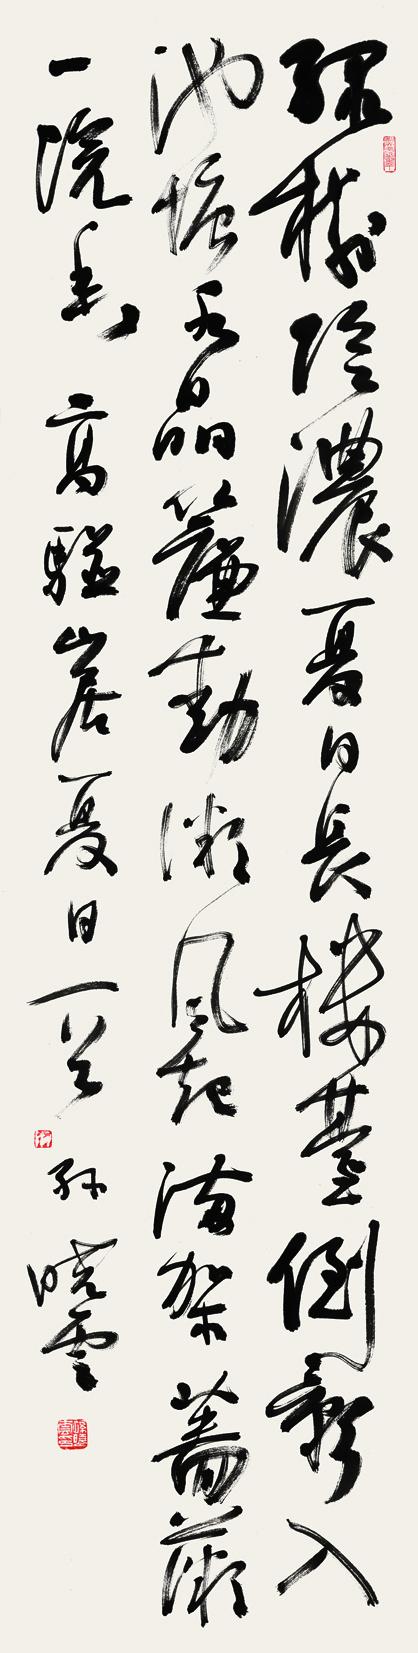 綠樹陰濃夏日長樓臺倒影入
池塘水晶簾動微風起滿架薔薇
一院香 高駢山居夏日一首 孫曉雲